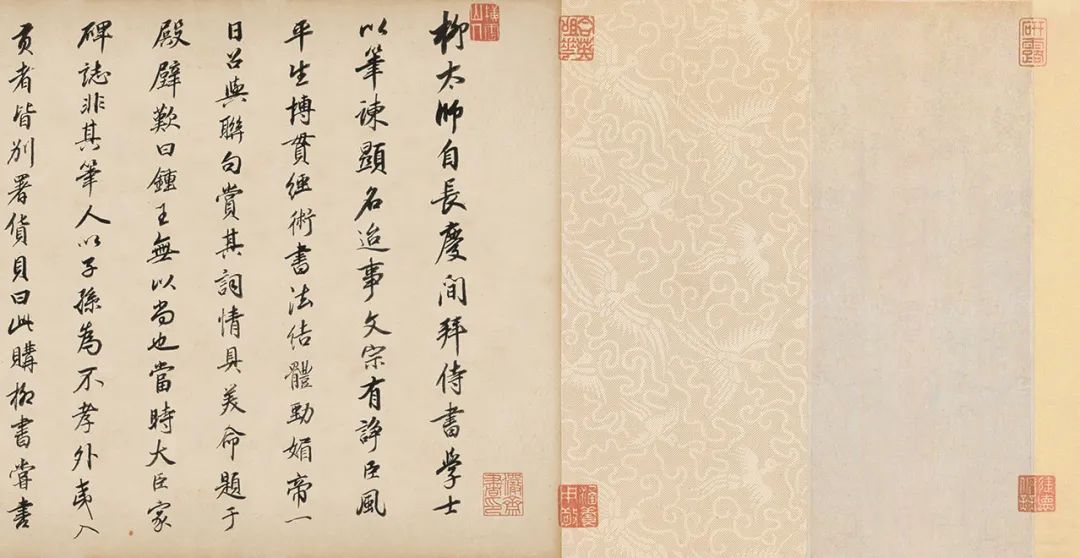 柳太師自長慶間拜侍書學士
以筆諫顯名迨事文宗有諍臣風
平生博貫經術書法結體勁媚帝一
日召與聯句賞其詞情具美命題于
殿壁歎曰鍾王無以尚也當時大臣家
碑誌非其筆人以子孫為不孝外夷入
貢者皆別署貨貝曰此購柳書嘗書